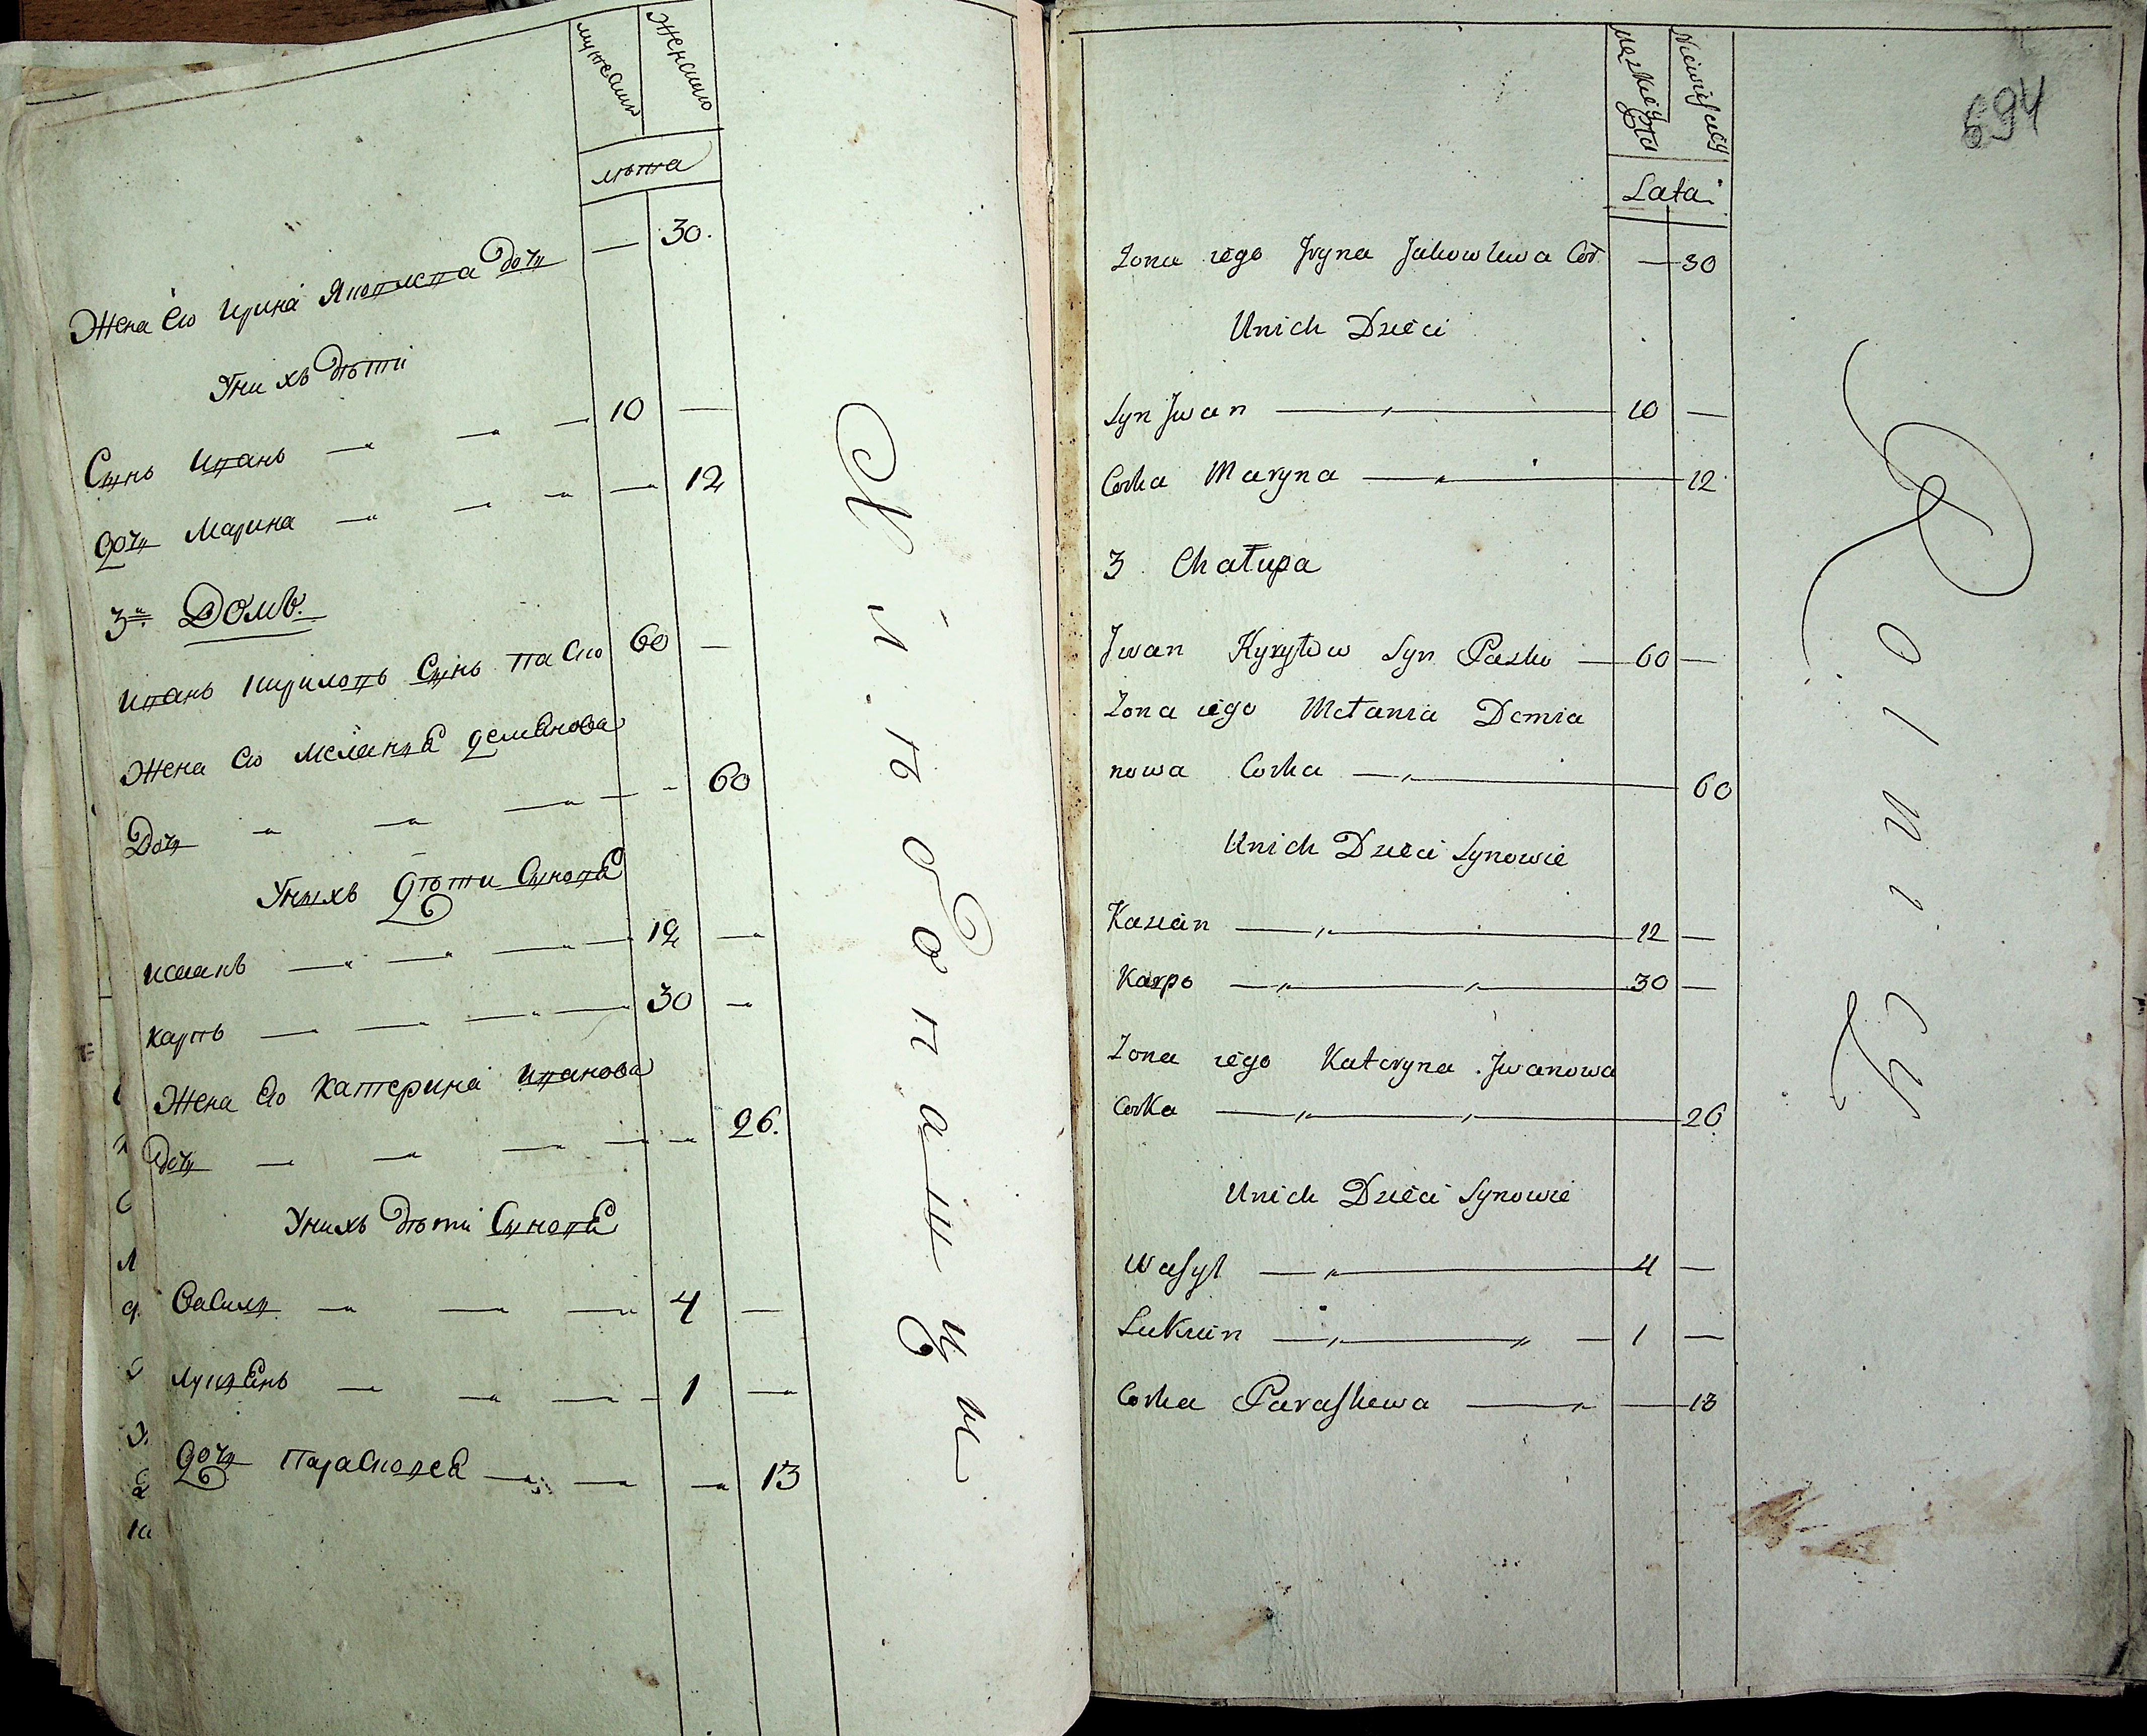 мужеска
женска
лѣта
Жена его Ирина Яковлева дочь — 30.
У нихъ дѣти
Сынъ Иванъ — 10 —
дочь Марина — 12
3й Домъ.
Иванъ Кириловъ Сынъ Паско 60 —
Жена его Меланья Демянова
Дочь — 60
У ныхъ дѣти Сыновя
Касианъ — 12 —
Карпъ — 30 —
Жена его Катерина Иванова
дочь — 26.
У нихъ дѣти Сыновя
Василь — 4 —
Лукянъ — 1 —
дочь Парасковея — 13
694
Męzkiey
Lata
Zona iego Iryna Jakowlewa Cór. — 30
Unich Dzieci
Syn Jwan — 10 —
Corka Maryna — 12
3 Chałupa
Jwan Kyryłow Syn Pasko — 60 —
Zona iego Mełania Demia
nowa Corka — 60
Unich Dzieci Synowie
Kasian — 12 —
Karpo — 30 —
Zona iego Kateryna Jwanowa
Corka — 26
Unich Dzieci Synowie
Wasyl — 4 —
Lukian — 1 —
Corka Paraskewa — 13